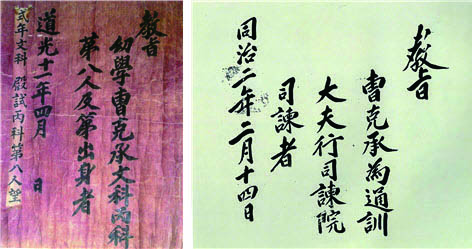 敎旨
幼學曹克承文科丙科
第八人及第出身者
道光十一年四月 日
式年文科 殿試丙科第八人望
敎旨
曹克承為通訓
大夫行司諫院
司諫者
同治二年二月十四日